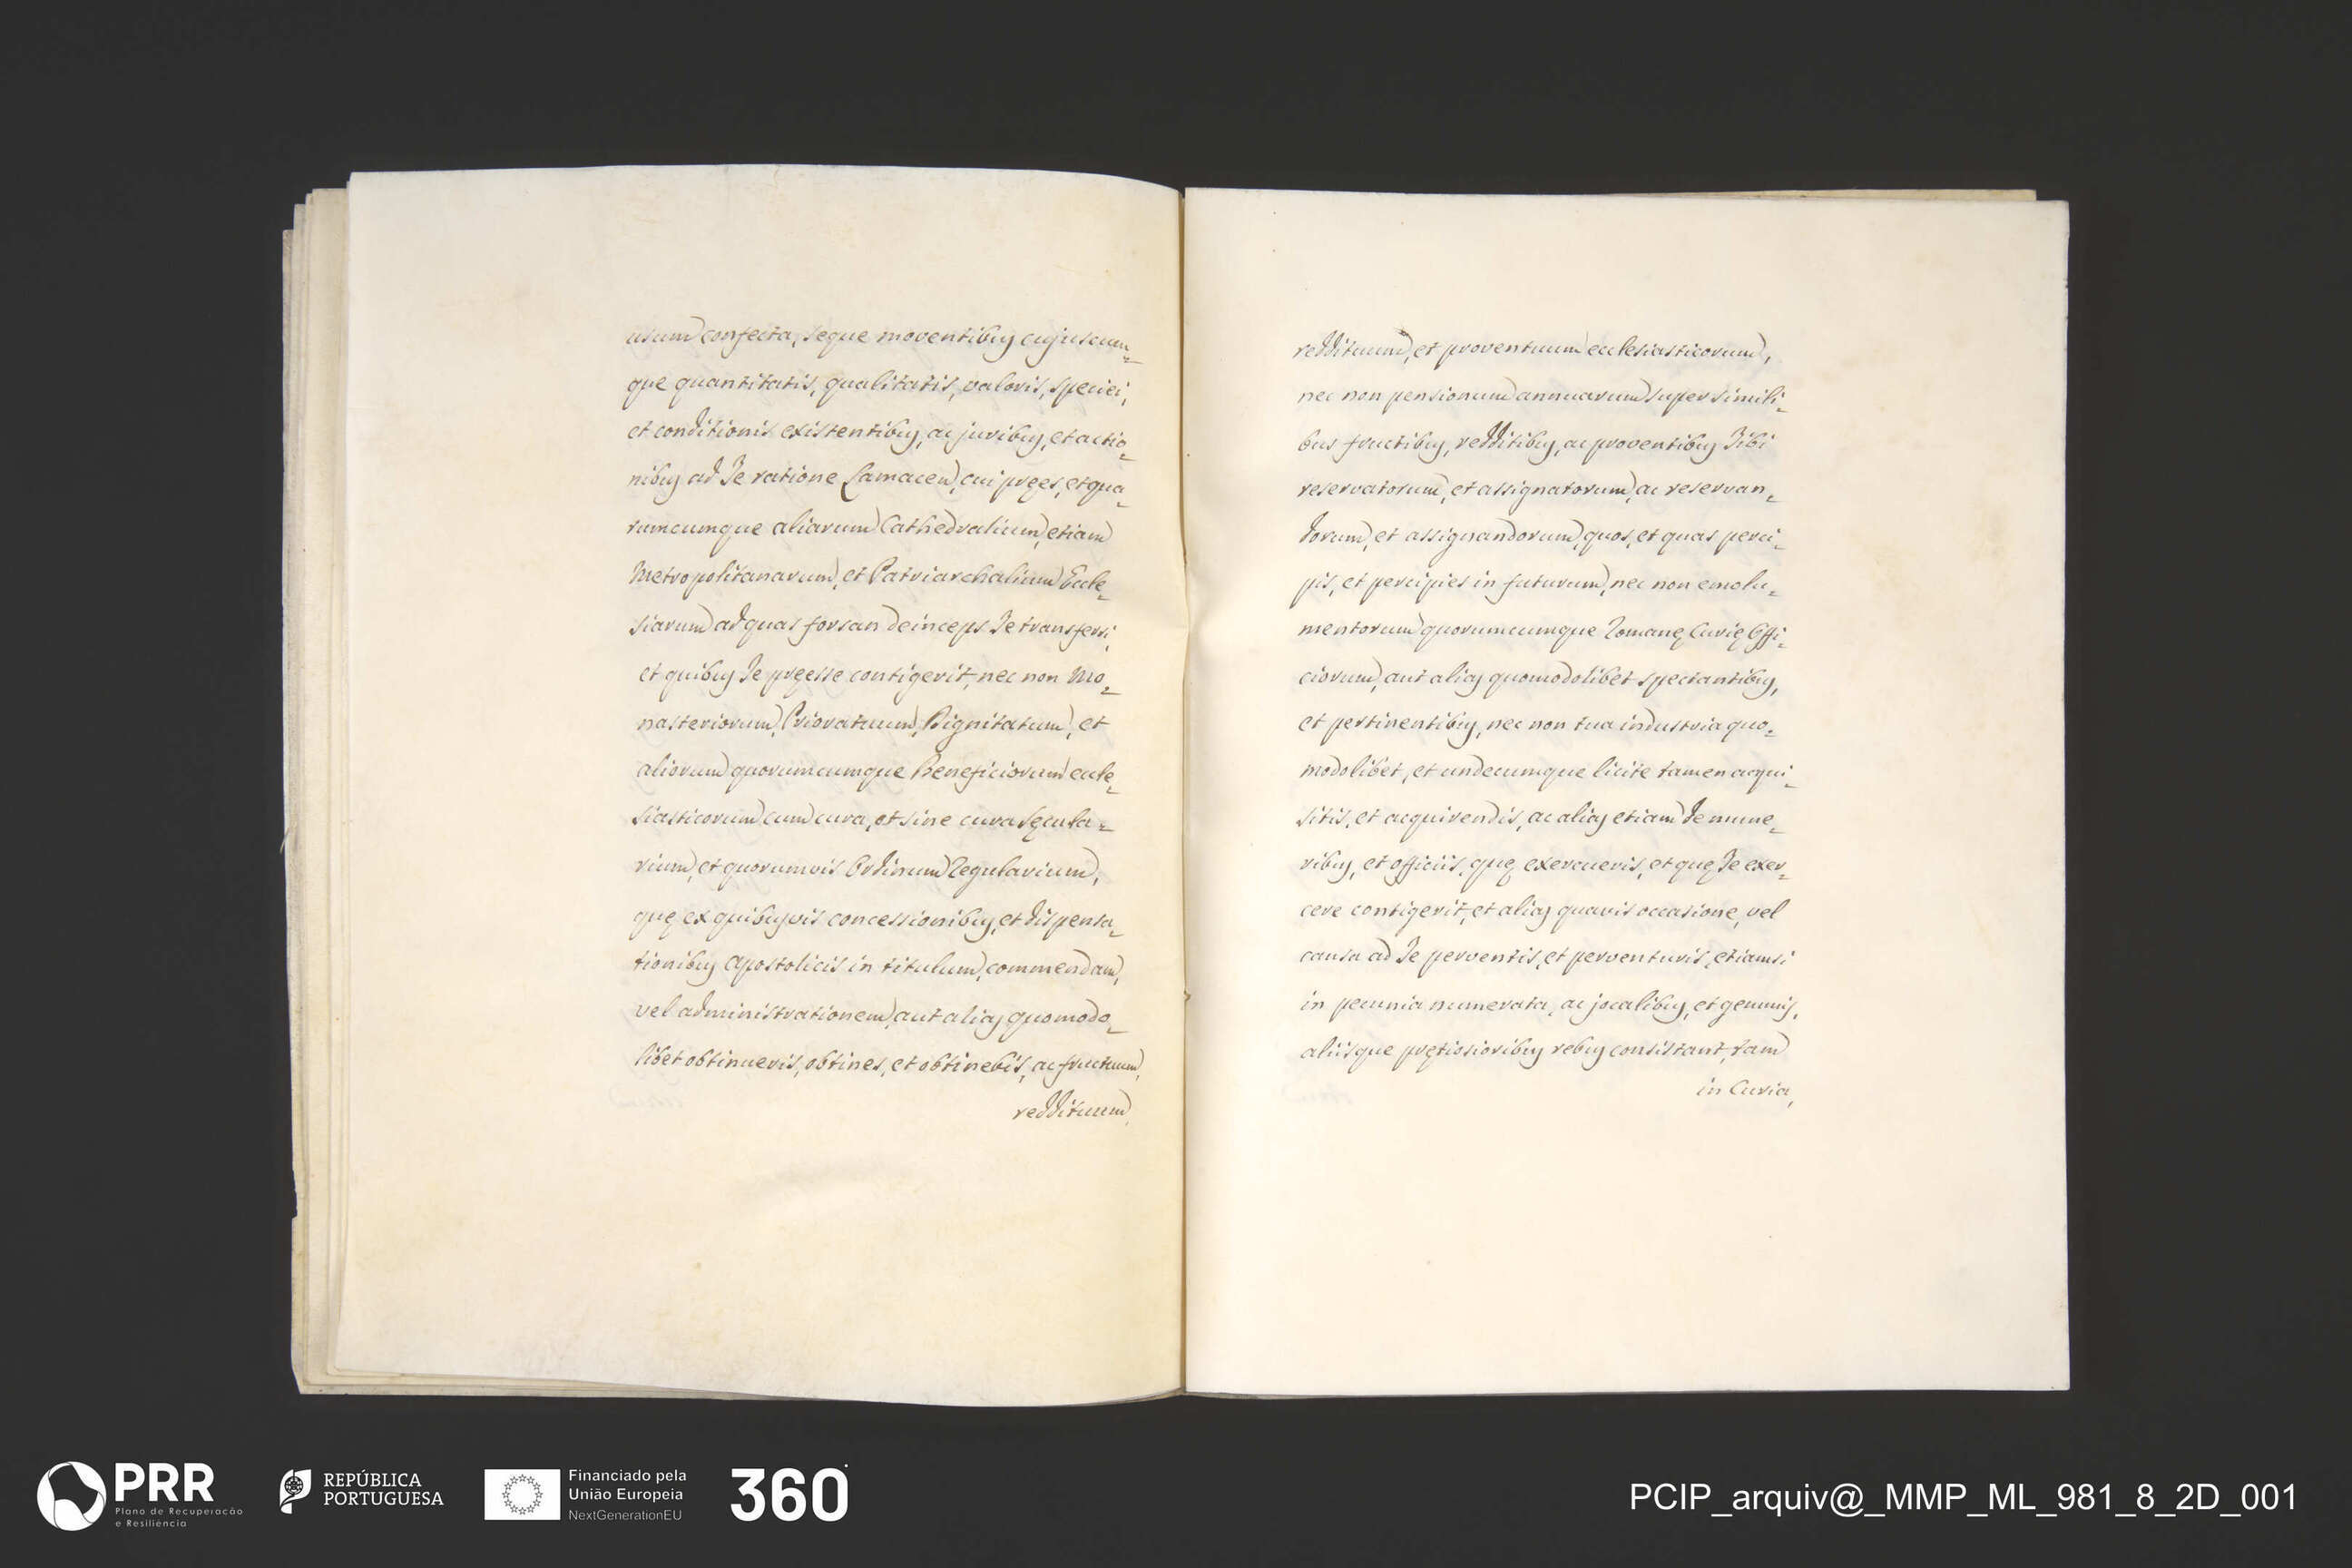 usum confecta, seque moventibus cujuscum=
que quantitatis, qualitatis, valoris, speciei,
et conditionis existentibus, ac juribus, et actio=
nibus ad Te ratione Lamacen, cui pręes, et qua=
rumcumque aliarum Cathedralium, etiam
Metropolitanarum, et Patriarchalium Eccle=
siarum ad quas forsan deinceps Te transferri,
et quibus Te pręesse contigerit, nec non Mo=
nasteriorum, Prioratuum, Dignitatum, et
aliorum quorumcumque Beneficiorum eccle=
siasticorum cum cura, et sine cura sęcula=
rium, et quorumvis Ordinum Regularium,
quę ex quibusvis concessionibus, et dispensa=
tionibus Apostolicis in titulum, commendam,
vel administrationem, aut alias quomodo=
libet obtinueris, obtines, et obtinebis, ac fructuum,
reddituum,
reddituum, et proventuum ecclesiasticorum,
nec non pensionum annuarum super simili=
bus fructibus, redditibus, ac proventibus Tibi
reservatorum, et assignatorum, ac reservan=
dorum, et assignandorum, quos, et quas perci=
pis, et percipies in futurum, nec non emolu=
mentorum quorumcumque Romanę Curię Offi=
ciorum, aut alias quomodolibet spectantibus,
et pertinentibus, nec non tua industria quo=
modolibet, et undecumque licite tamen acqui=
sitis, et acquirendis, ac alias etiam de mune=
ribus, et officiis, quę exercueris, et quę Te exer=
cere contigerit, et alias quavis occasione, vel
causa ad Te perventis, et perventuris, etiamsi
in pecunia numerata, ac jocalibus, et gemmis,
aliisque prętiosioribus rebus consistant, tam
in Curia,
PRR
Plano de Recuperação
e Resiliência
REPÚBLICA
PORTUGUESA
Financiado pela
União Europeia
NextGenerationEU
360°
PCIP_arquiv@_MMP_ML_981_8_2D_001